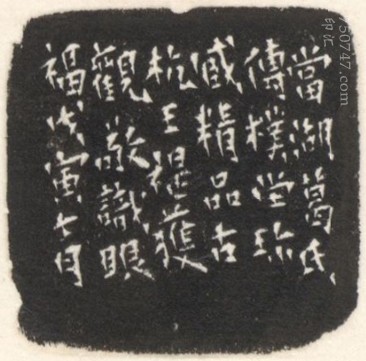 當湖葛氏
傳樸堂珍
臧精品古
杭王禔獲
觀敬識眼
福戊寅七月
50747.com